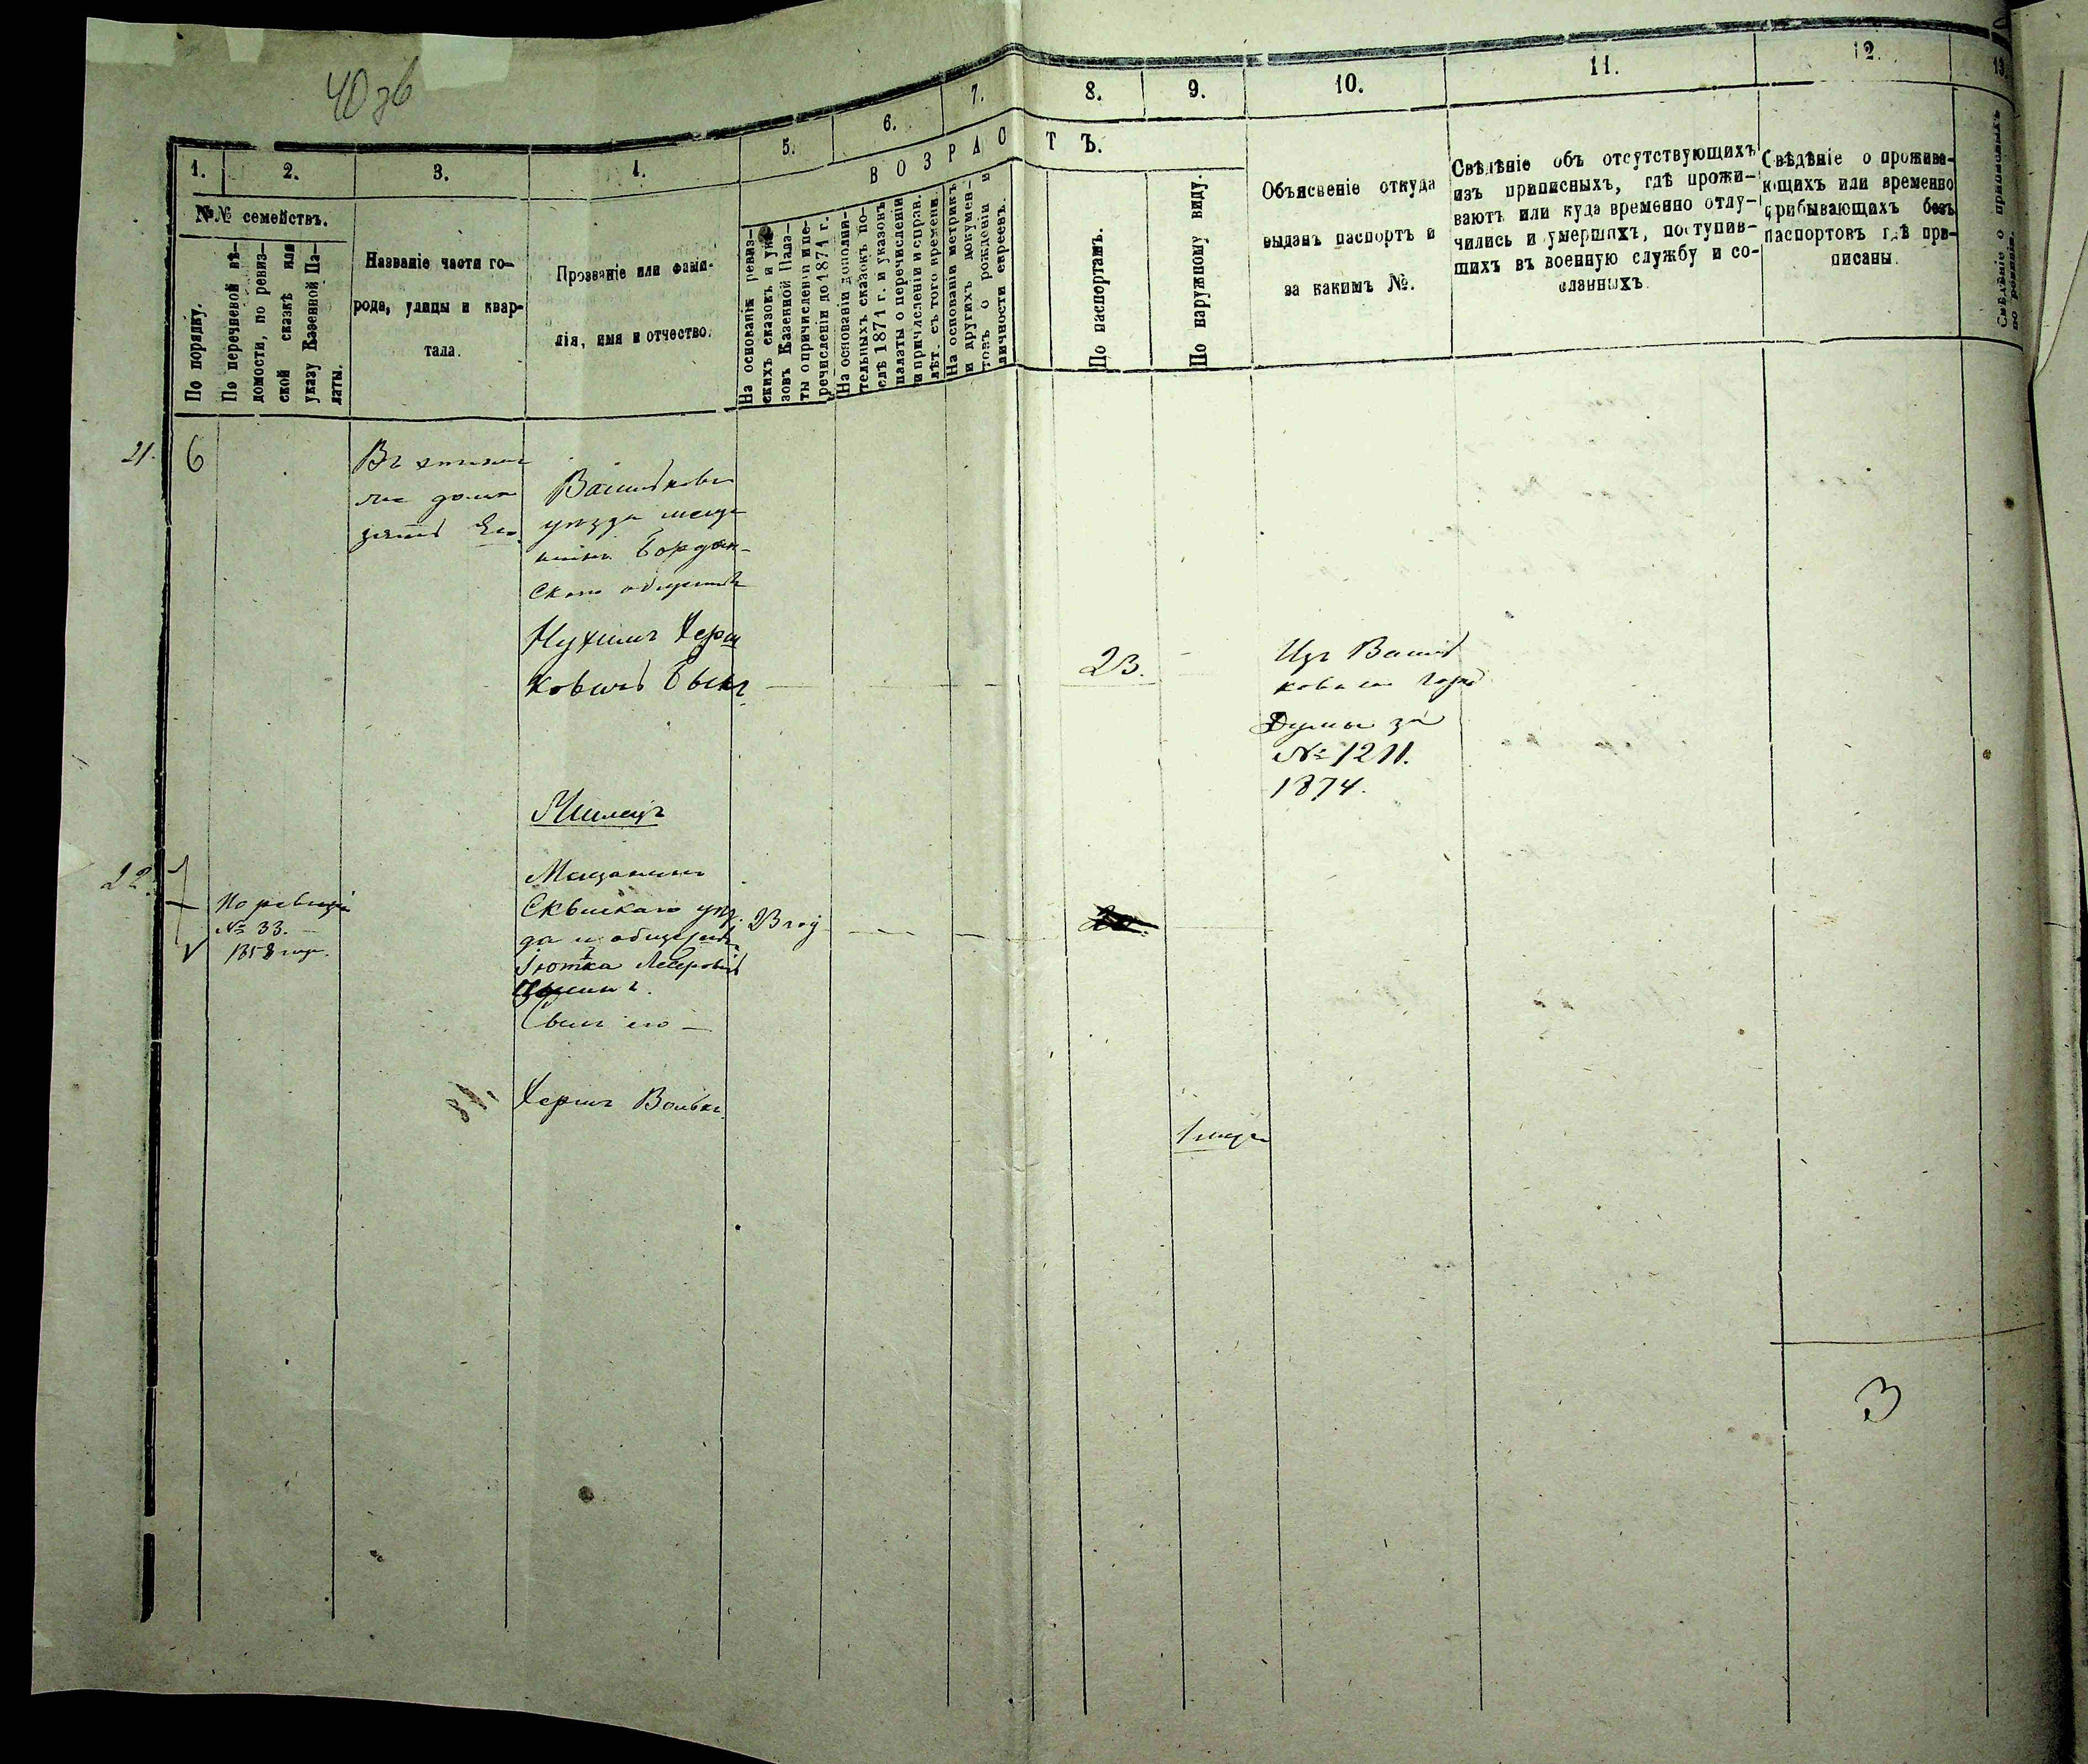 40 зв
1. 2. 3. 4. 5. 6. 7. 8. 9. 10. 11. 12. 13.
№№ семействъ.
По порядку.
По перечневой вѣ-
домости, по ревиз-
ской сказкѣ или
указу Казенной Па-
латы.
Названіе части го-
рода, улицы и квар-
тала.
Прозваніе или фами-
лія, имя и отчество.
ВОЗРАСТЪ.
На основаніи ревиз-
скихъ сказокъ и ука-
зовъ Казенной Пала-
ты о причисленіи и пе-
речисленіи до 1871 г.
На основаніи дополни-
тельныхъ сказокъ по-
слѣ 1871 г. и указовъ
палаты о перечисленіи
и причисленіи и справ.
лѣт. съ того времени.
На основаніи метрикъ
и другихъ докумен-
товъ о рожденіи и
личности евреевъ.
По паспортамъ.
По наружному виду.
Объясненіе откуда
выданъ паспортъ и
за какимъ №.
Свѣдѣніе объ отсутствующихъ
изъ приписныхъ, гдѣ прожи-
ваютъ или куда временно отлу-
чились и умершихъ, поступив-
шихъ въ военную службу и со-
сланныхъ.
Свѣдѣніе о прожива-
ющихъ или временно
прибывающихъ безъ
паспортовъ гдѣ при-
писаны.
21. 6
Въ
домѣ
зять Его
Васильков
уѣзда меща
нинъ
Скаго общества
Нухимъ Херш
ковичъ Быкъ
23.
Изъ Василь
ков
Думы за
№ 1211.
1874.
22.
По ревизіи
№ 33.
1858 года.
Мещанинъ
Сквискаго уѣз
да и общества
Лейзеровичъ
23 год
Сынъ его
Хершъ Волько
1 мѣсяц
3